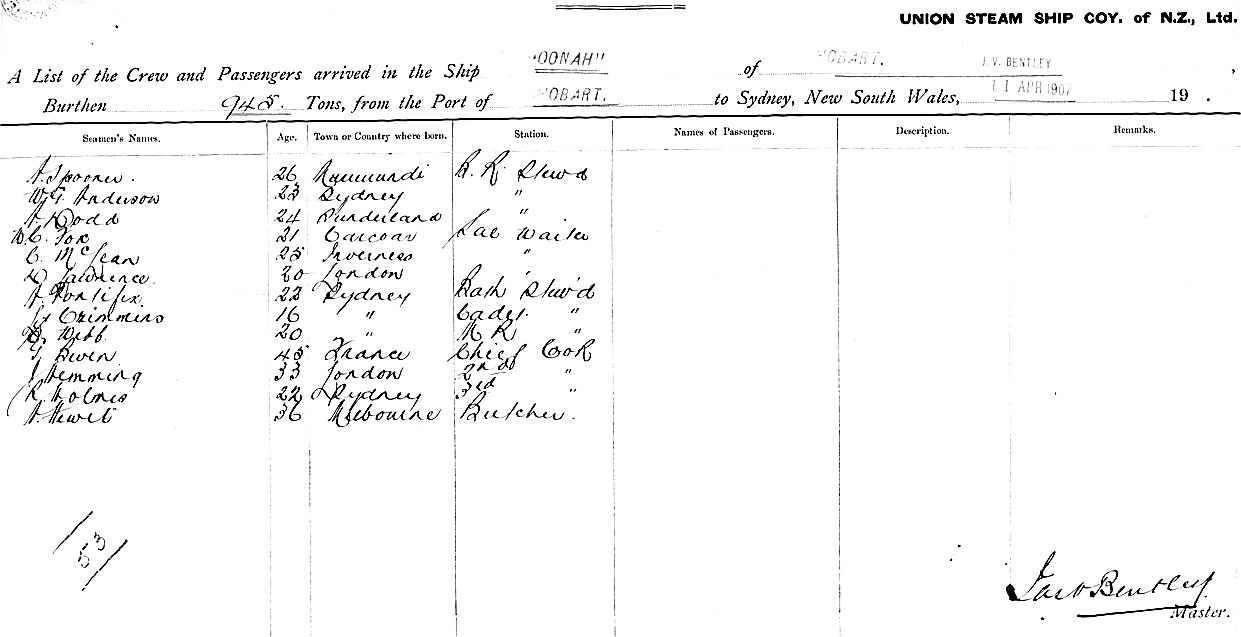 UNION STEAM SHIP COY. of N.Z., Ltd.
A List of the Crew and Passengers arrived in the Ship "OONAH" of HOBART. J.V. BENTLEY
Burthen 945. Tons, from the Port of HOBART. to Sydney, New South Wales, 11 APR 1907 19 .
Seamen's Names. Age. Town or Country where born. Station. Names of Passengers. Description. Remarks.
A. Spooner. 26 B. R. Stew'd
W. G. Anderson 23 Sydney "
A. Dodd 24 Sunderland "
W. C. Fox 21 Carcoar Sal Waiter
C. McLean 25 Inverness "
D. Lawrence. 20 London "
A. Pontifix. 22 Sydney Bath Stew'd
Crimmins 16 " Cadet. "
Webb. 20 " "
Bwen 45 France Chief Cook
J Hemming 33 London 2nd "
R. Holmes 22 Sydney 3rd "
A. Hewit 36 Melbourne Butcher.
/53/
Jas V Bentley
Master.